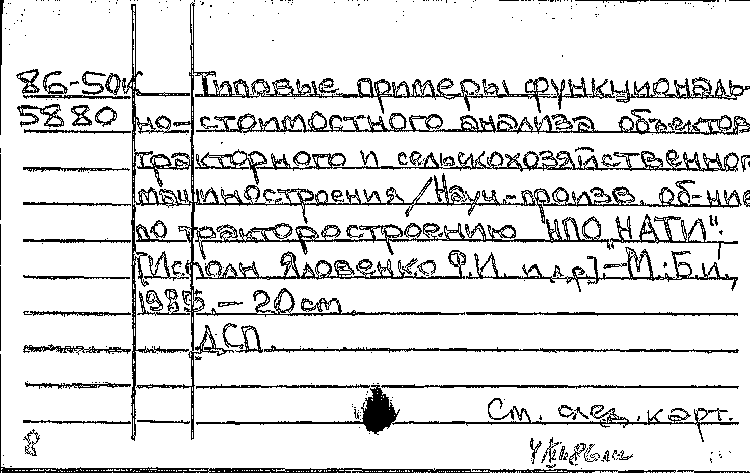 86-50к Типовые примеры функциональ-
5880 но-стоимостного анализа объектов
тракторного и сельскохозяйственного
машиностроения /Науч.-произв. об-ние
по тракторостроению "НПО НАТИ";
[Исполн Яловенко Ф.И. и др].-М.:Б.и.,
1985.- 20 cm.
ДСП.
См. след. карт.
8